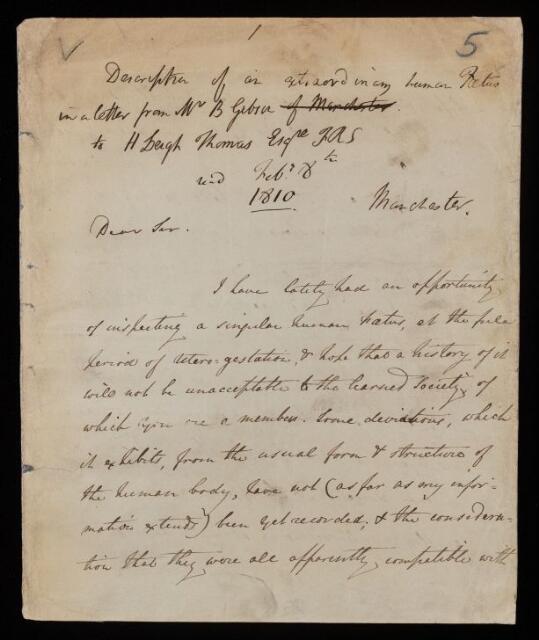 1
5
Description of an extraordinary human Fœtus
in a letter from Mr B Gibson of Manchester
to H Leigh Thomas Esqre FRS
red Feby 8th
1810
Manchester.
Dear Sir.
I have lately had an opportunity
of inspecting a singular human fœtus, at the full
period of utero-gestation, & hope that a history of it
will not be unacceptable to the learned Society, of
which you are a member. Some deviations, which
it exhibits, from the usual form & structure of
the human body, have not (as far as my infor-
mation extends) been yet recorded; & the considera-
tion that they were all apparently compatible with